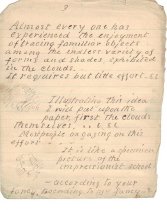 3
Almost every one has
experienced the enjoyment
of tracing familiar objects
among the endless variety of
forms and shades exhibited
in the clouds.
It requires but little effort. &c
Illustrating this idea
I will put upon the
paper, first the clouds
themselves, ... &c
on this
effort
It is like a
picture of the
impressionist school
- according to your
fancy,